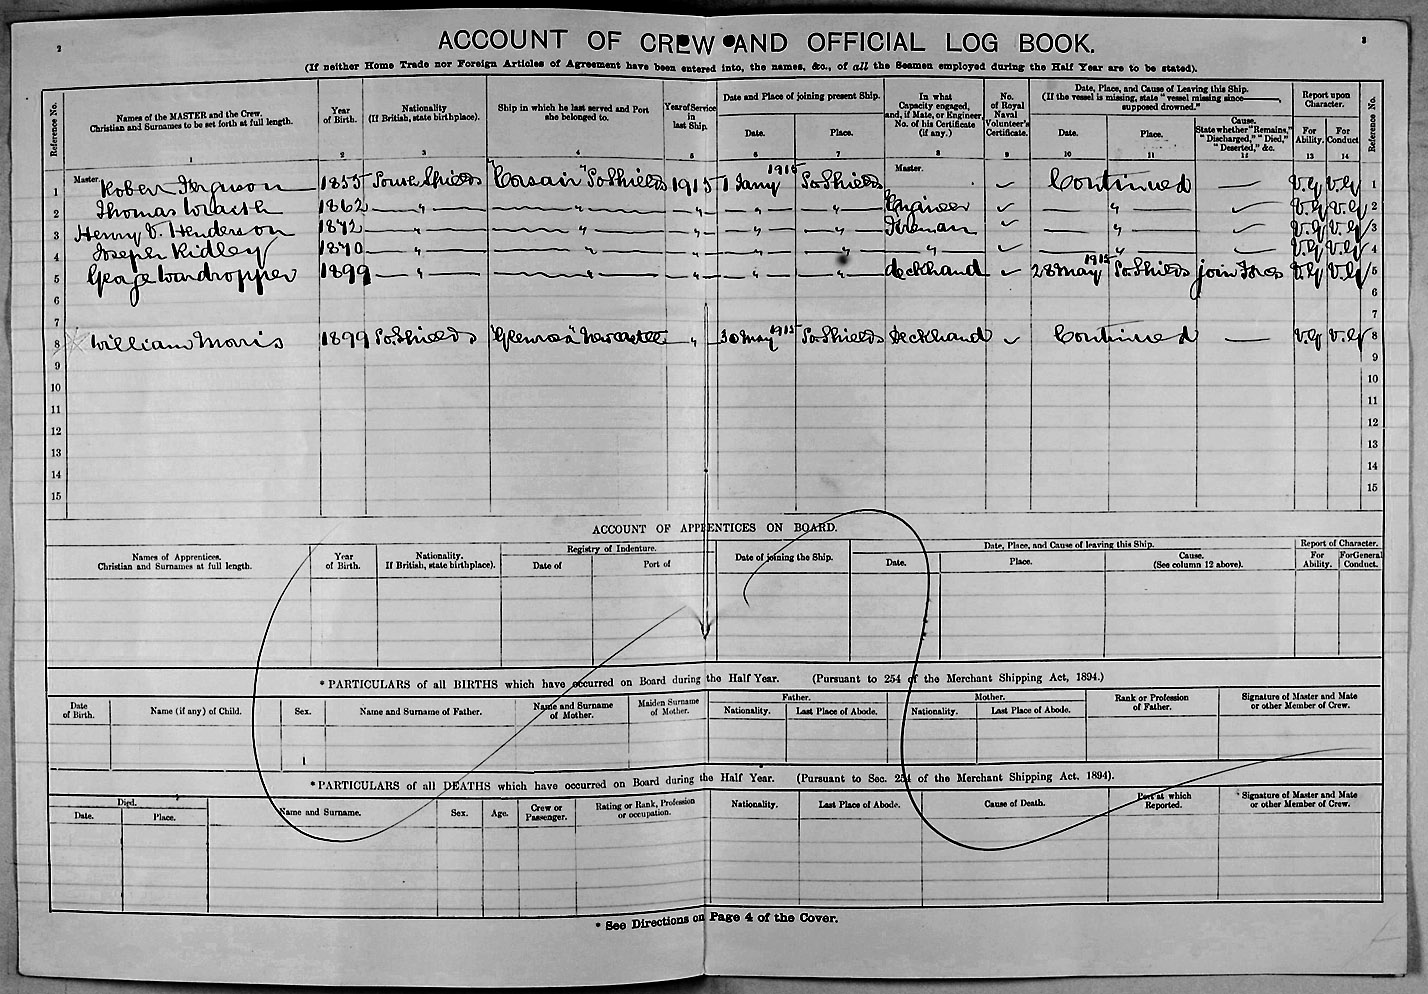 2
3
ACCOUNT OF CREW AND OFFICIAL LOG BOOK.
(If neither Home Trade nor Foreign Articles of Agreement have been entered into, the names, &c., of all the Seamen employed during the Half Year are to be stated).
Reference No. Names of the MASTER and the Crew. Christian and Surnames to be set forth at full length. Year of Birth. Nationality (If British, state birthplace). Ship in which he last served and Port she belonged to. Year of Service in last Ship. Date and Place of joining present Ship. Date. Place. In what Capacity engaged, and, if Mate, or Engineer, No. of his Certificate (if any.) No. of Royal Naval Volunteer's Certificate. Date, Place, and Cause of Leaving this Ship. (If the vessel is missing, state "vessel missing since ———, supposed drowned." Date. Place. Cause. State whether "Remains," "Discharged," "Died," "Deserted," &c. Report upon Character. For Ability. For Conduct Reference No.
1 2 3 4 5 6 7 8 9 10 11 12 13 14
1 Master Robert Ferguson 1855 South Shields "Corsair" So Shields 1915 1 Jany 1915 So Shields Master. ✓ Continued — V.G V.G 1
2 Thomas Wraith 1862 " " " " " Engineer ✓ " ✓ V.G V.G 2
3 Henry V. Henderson 1872 " " " " " Fireman ✓ " ✓ V.G V.G 3
4 Joseph Ridley 1870 " " " " " " ✓ " ✓ V.G V.G 4
5 George Wardropper 1899 " " " " " deckhand ✓ 28 May 1915 So Shields join Fores V.G V.G 5
6 6
7 7
8 William Morris 1899 So. Shields "Glenrosa" Newcastle " 30 May 1915 So Shields Deckhand ✓ Continued — V.G V.G 8
9 9
10 10
11 11
12 12
13 13
14 14
15 15
ACCOUNT OF APPRENTICES ON BOARD.
Names of Apprentices. Christian and Surnames at full length. Year of Birth. Nationality. If British, state birthplace). Registry of Indenture. Date of Port of Date of joining the Ship. Date, Place, and Cause of leaving this Ship. Date. Place. Cause. (See column 12 above). Report of Character. For Ability. For General Conduct.
* PARTICULARS of all BIRTHS which have occurred on Board during the Half Year. (Pursuant to 254 of the Merchant Shipping Act, 1894.)
Date of Birth. Name (if any) of Child. Sex. Name and Surname of Father. Name and Surname of Mother. Maiden Surname of Mother. Father. Nationality. Last Place of Abode. Mother. Nationality. Last Place of Abode. Rank or Profession of Father. Signature of Master and Mate or other Member of Crew.
* PARTICULARS of all DEATHS which have occurred on Board during the Half Year. (Pursuant to Sec. 254 of the Merchant Shipping Act, 1894).
Died. Date. Place. Name and Surname. Sex. Age. Crew or Passenger. Rating or Rank, Profession or occupation. Nationality. Last Place of Abode. Cause of Death. Port at which Reported. * Signature of Master and Mate or other Member of Crew.
* See Directions on Page 4 of the Cover.